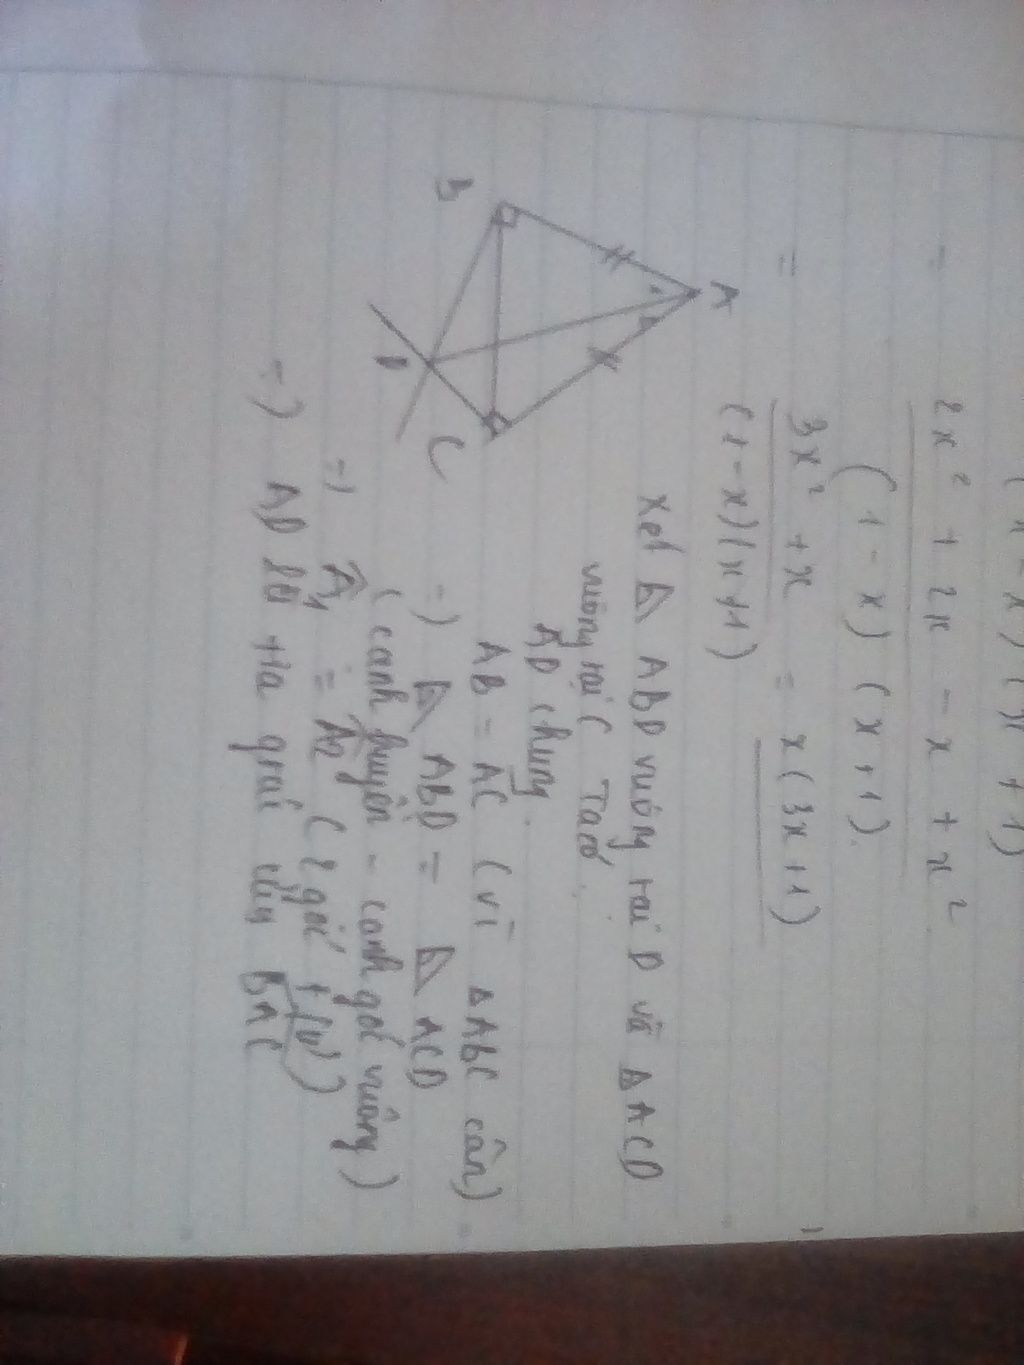 (1-x)(x+1)
= 2x² + 2x - x + x²
(1-x)(x+1)
= 3x² + x = x(3x+1)
(1-x)(x+1)
A
B
C
D
Xét ⊿ ABD vuông tại D và ΔACD
vuông tại C Ta có
AD chung.
AB = AC (vì ΔABC cân)
=) ⊿ ABD = ⊿ ACD
(cạnh huyền - cạnh góc vuông)
=) Â₁ = Â₂ (2 góc t/ứ)
=) AD là tia giác của BAC